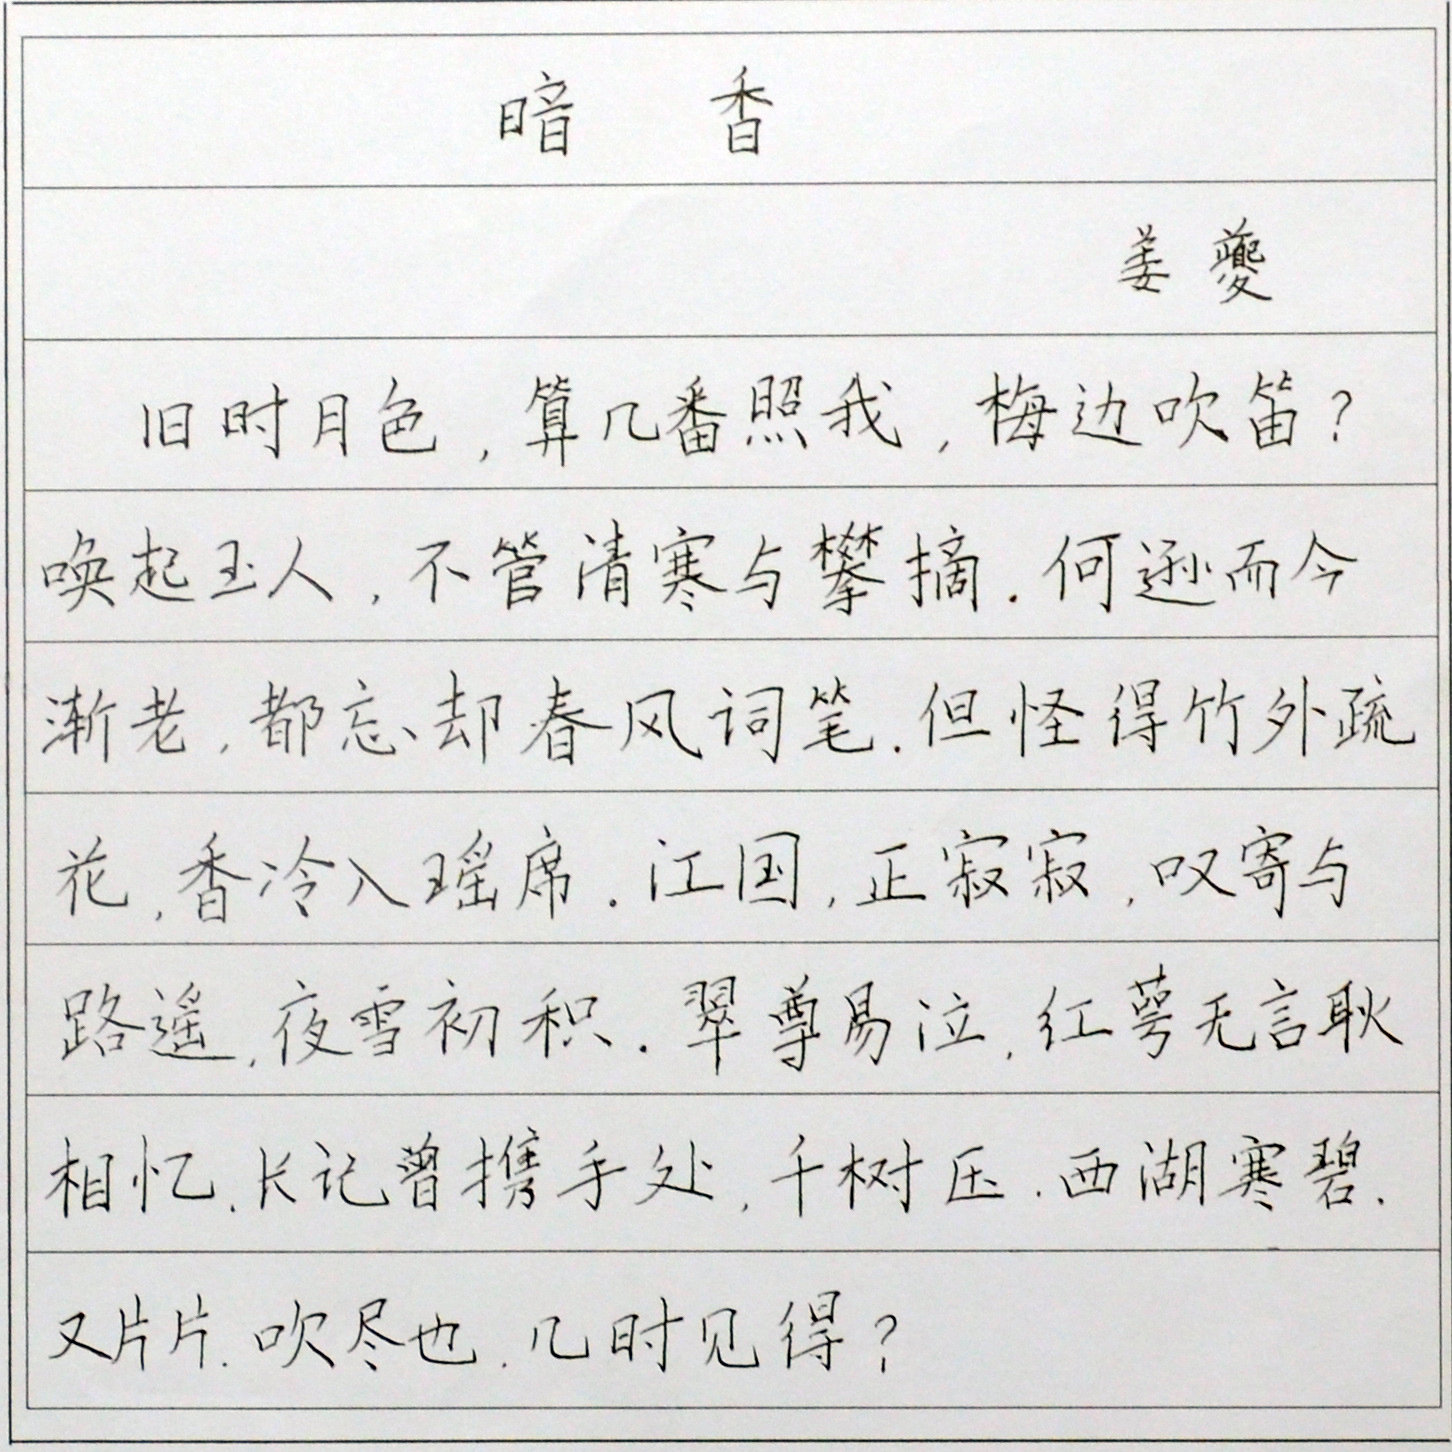 暗 香
姜 夔
旧时月色,算几番照我,梅边吹笛?
唤起玉人,不管清寒与攀摘.何逊而今
渐老,都忘却春风词笔.但怪得竹外疏
花,香冷入瑶席.江国,正寂寂,叹寄与
路遥,夜雪初积.翠尊易泣,红萼无言耿
相忆.长记曾携手处,千树压.西湖寒碧.
又片片.吹尽也.几时见得?